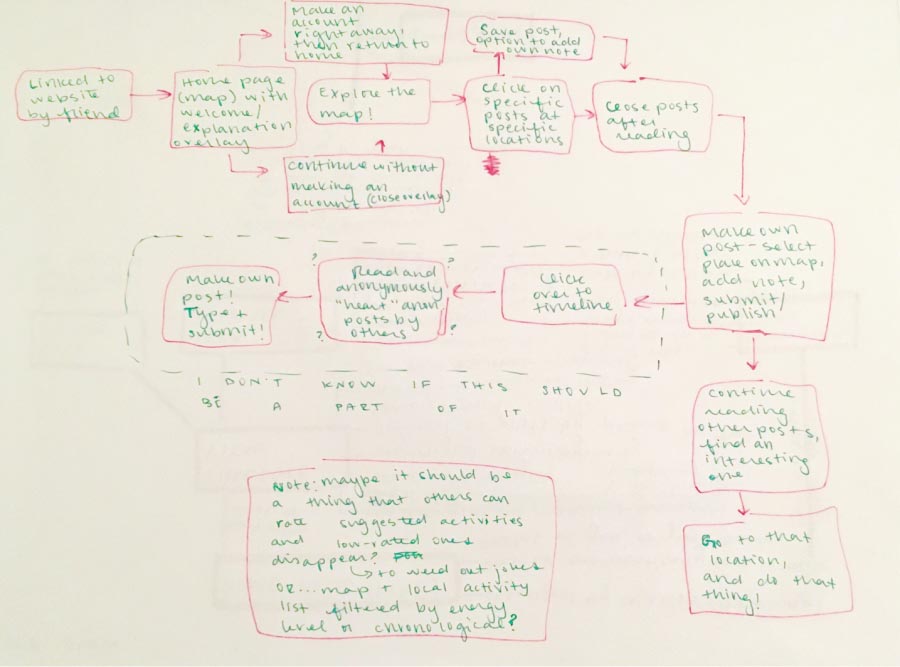 Linked to
website
by friend
Home page
(map) with
welcome/
explanation
overlay
Make an
account
right away,
then return to
home
Explore the
map!
continue without
making an
account (close overlay)
Save post,
option to add
own note
Click on
specific
posts at
specific
locations
Close posts
after
reading
Make own
post - select
place on map,
add note,
submit/
publish
Click
over to
timeline
? ?
Read and
anonymously
"heart" anon
posts by
others
? ?
Make own
post!
Type +
submit!
I DON'T KNOW IF THIS SHOULD
BE A PART OF IT
continue
reading
other posts,
find an
interesting
one
Go to that
location,
and do that
thing!
Note: maybe it should be
a thing that others can
rate suggested activities
and low-rated ones
disappear?
↳ to weed out jokes
or... map + local activity
list filtered by energy
level or chronological?